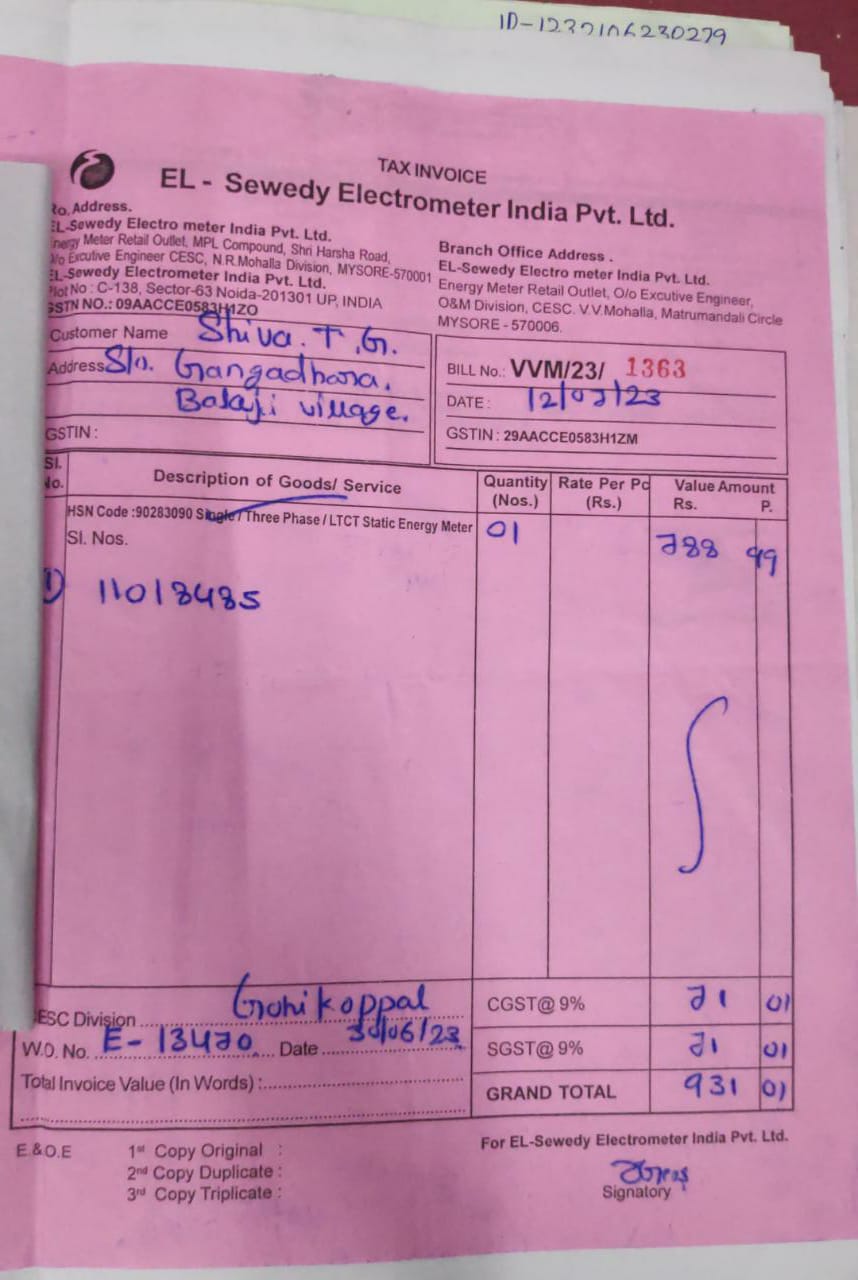 ID-1232106230279
TAX INVOICE
EL - Sewedy Electrometer India Pvt. Ltd.
Ro. Address.
EL-Sewedy Electro meter India Pvt. Ltd.
Energy Meter Retail Outlet, MPL Compound, Shri Harsha Road,
O/o Excutive Engineer CESC, N.R.Mohalla Division, MYSORE-570001
EL-Sewedy Electrometer India Pvt. Ltd.
Plot No : C-138, Sector-63 Noida-201301 UP, INDIA
GSTN NO.: 09AACCE0583H1ZO
Branch Office Address .
EL-Sewedy Electro meter India Pvt. Ltd.
Energy Meter Retail Outlet, O/o Excutive Engineer,
O&M Division, CESC. V.V.Mohalla, Matrumandali Circle
MYSORE - 570006.
Customer Name Shiva. T .G.
Address S/o. Gangadhara.
Balaji village.
GSTIN :
BILL No.: VVM/23/ 1363
DATE : 12/07/23
GSTIN : 29AACCE0583H1ZM
Sl. No. Description of Goods/ Service Quantity (Nos.) Rate Per Pc (Rs.) Value Amount Rs. P.
HSN Code :90283090 Single / Three Phase / LTCT Static Energy Meter 01 788 99
Sl. Nos.
1) 11018485
CESC Division Gonikoppal
W.O. No. E-13470 Date 30/06/23
Total Invoice Value (In Words) :
CGST@ 9% 71 01
SGST@ 9% 71 01
GRAND TOTAL 931 01
E.&O.E
1st Copy Original :
2nd Copy Duplicate :
3rd Copy Triplicate :
For EL-Sewedy Electrometer India Pvt. Ltd.
Signatory